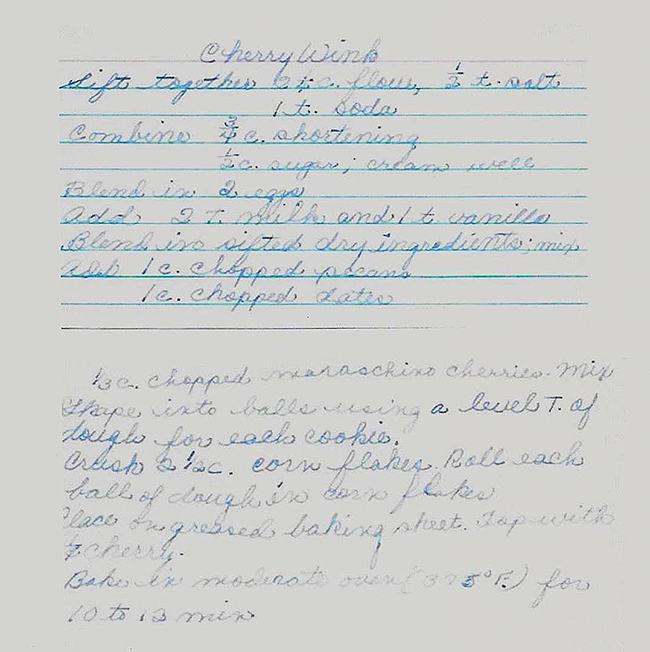 Cherry Wink
Sift together 2 ¼ c. flour, ½ t. salt
1 t. soda
Combine ¾ c. shortening
½ c. sugar; cream well
Blend in 2 eggs
Add 2 T. milk and 1 t vanilla
Blend in sifted dry ingredients; mix
Add 1 c. chopped pecans
1 c. chopped dates
⅓ c. chopped maraschino cherries. Mix
Shape into balls using a level T. of
dough for each cookie.
Crush 2 ½ c. corn flakes. Roll each
ball of dough in corn flakes
Place on greased baking sheet. Top with
¼ cherry.
Bake in moderate oven (375°F.) for
10 to 12 min